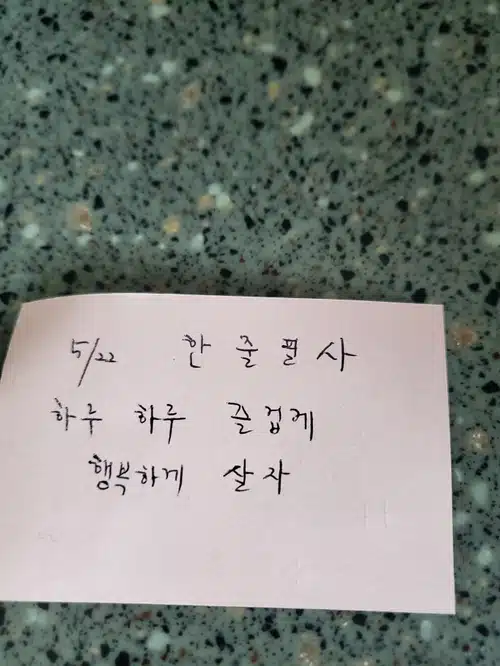 5/22 한 줄 필 사
하루 하루 즐겁게
행복하게 살자